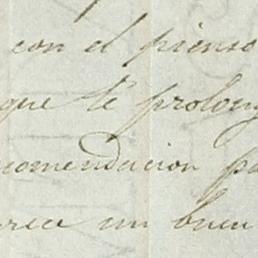 con el pienso
que le prolong
comendacion pa
rece un buen